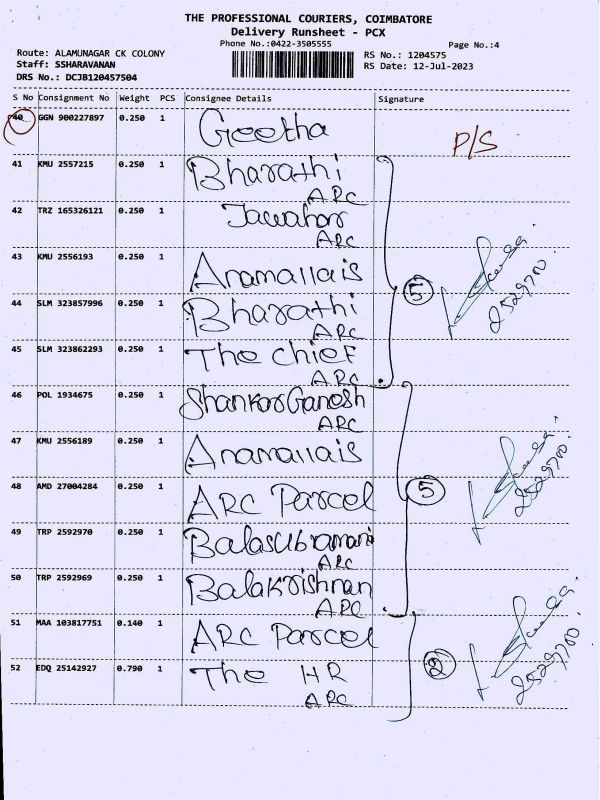 THE PROFESSIONAL COURIERS, COIMBATORE
Delivery Runsheet - PCX
Phone No.:0422-3505555
Page No.:4
Route: ALAMUNAGAR CK COLONY
Staff: SSHARAVANAN
DRS No.: DCJB120457504
RS No.: 1204575
RS Date: 12-Jul-2023
S No Consignment No Weight PCS Consignee Details Signature
40 GGN 900227897 0.250 1 Geetha P/S
41 KMU 2557215 0.250 1 Bharathi
ARC
42 TRZ 165326121 0.250 1 Jawahar
ARC
43 KMU 2556193 0.250 1 Anamallais
5
44 SLM 323857996 0.250 1 Bharathi
ARC
45 SLM 323862293 0.250 1 The chief
ARC
46 POL 1934675 0.250 1 Shankar Ganesh
ARC
47 KMU 2556189 0.250 1 Anamallais
48 AMD 27004284 0.250 1 ARC Parcel 5
49 TRP 2592970 0.250 1 Balasubramani
ARC
50 TRP 2592969 0.250 1 Balakrishnan
ARC
51 MAA 103817751 0.140 1 ARC Parcel
52 EDQ 25142927 0.790 1 The HR 2
ARC